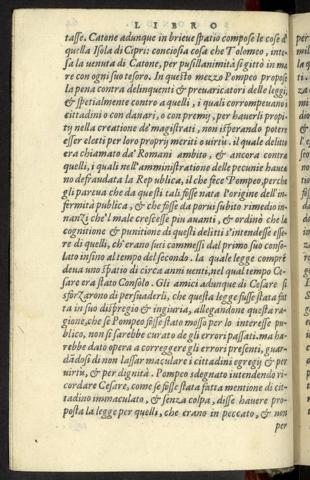 LIBRO
tasse. Catone adunque in brieve spatio compose le cose d'
quella Isola di Cipri: conciosia cosa che Tolomeo, inte-
sa la venuta di Catone, per pusillanimità si gittò in ma
re con ogni suo tesoro. In questo mezzo Pompeo propose
la pena contra delinquenti & prevaricatori delle leggi,
& spetialmente contro a quelli, i quali corrompeuano i
cittadini o con danari, o con premij, per hauerli propi-
tij nella creatione de' magistrati, non isperando potere
esser eletti per loro proprij meriti o uirtù. il quale delitto
era chiamato da' Romani ambito, & ancora contra
quelli, i quali nell'amministratione delle pecunie haue
no defraudata la Republica, il che fece Pompeo, perche
gli pareua che da questi tali fosse nata l'origine dell'in-
fermità publica, & che fosse da porui subito rimedio in-
nanzi che'l male crescesse piu auanti, & ordinò che la
cognitione & punitione di questi delitti s'intendesse esse-
re di quelli, ch'erano suti commessi dal primo suo conso-
lato insino al tempo del secondo. la quale legge compré
deua uno spatio di circa anni uenti, nel qual tempo Ce-
sare era stato Consolo. Gli amici adunque di Cesare si
sforzarono di persuaderli, che questa legge fusse stata fat
ta in suo dispregio & ingiuria, allegandone questa ra-
gione, che se Pompeo fosse stato mosso per lo interesse pu-
blico, non si sarebbe curato de gli errori passati, ma ha-
rebbe dato opera a correggere gli errori presenti, guar-
dādosi di non lassar maculare i cittadini egregij & per
uirtù, & per dignità. Pompeo sdegnato intendendo ri-
cordare Cesare, come se fosse stata fatta mentione di cit-
tadino immaculato, & senza colpa, disse hauere pro-
posta la legge per quelli, che erano in peccato, & non
per